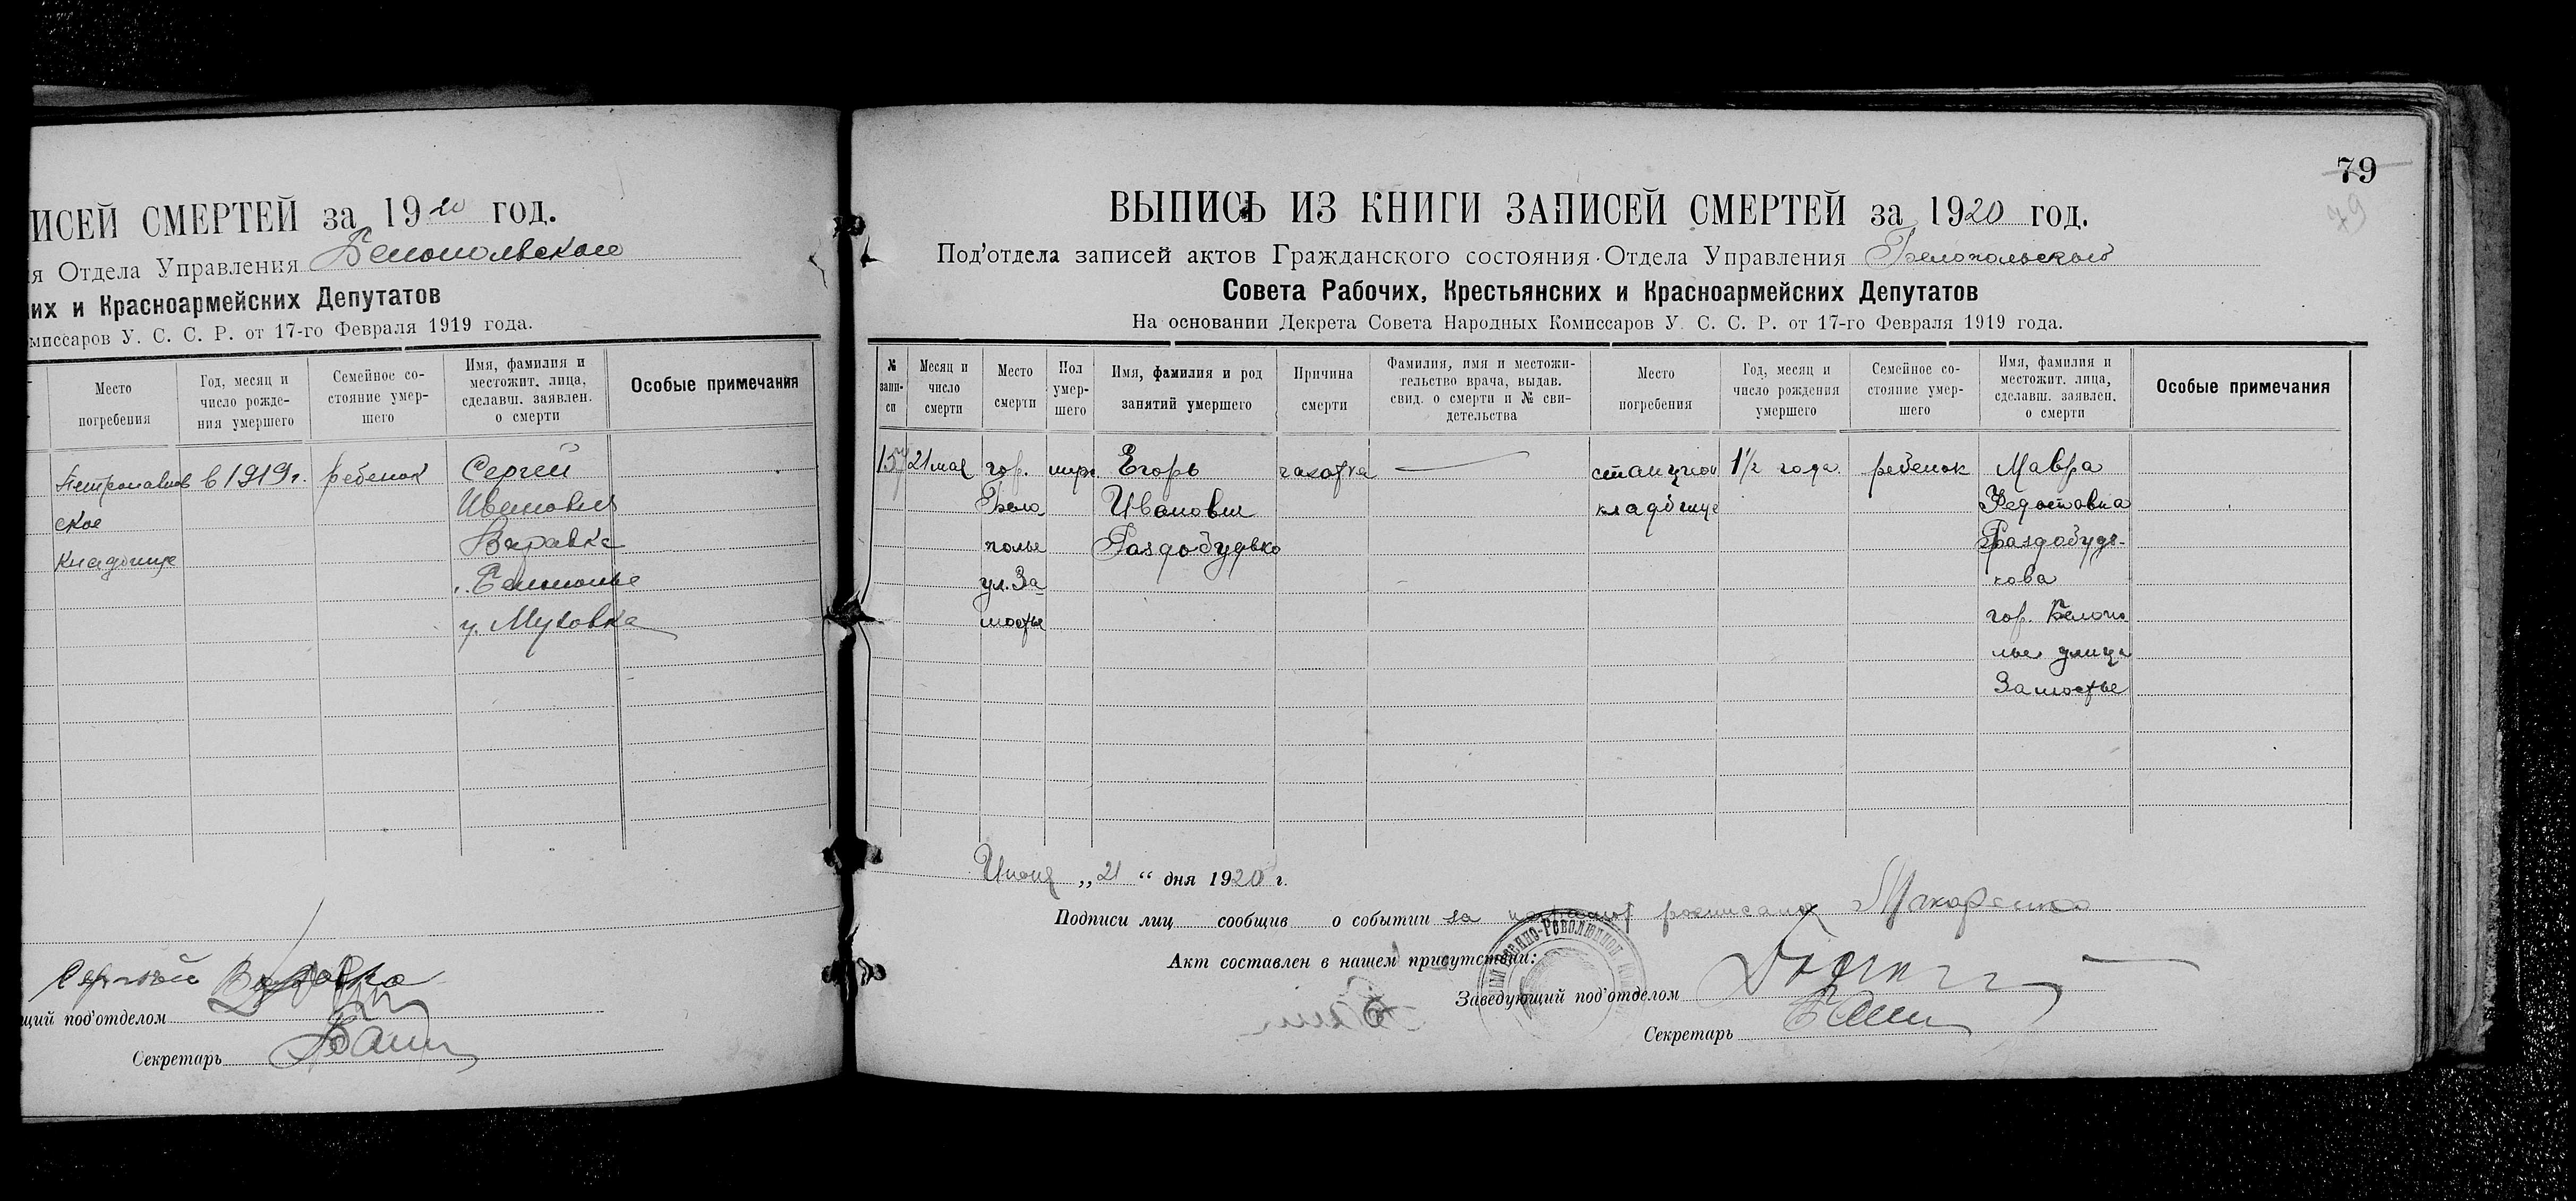 ИСЕЙ СМЕРТЕЙ за 1920 год.
ия Отдела Управления Белопольского
их и Красноармейских Депутатов
миссаров У. С. С. Р. от 17-го Февраля 1919 года.
Место погребения
Год, месяц и число рождения умершего
Семейное состояние умершего
Имя, фамилия и местожит. лица, сделавш. заявлен. о смерти
Особые примечания
Петропавлов
ское
Кладбище
в 1919 г.
ребенок
Сергей
Иванович
Виравка
Белополье
у.
Сергей
щий под'отделом
Секретарь
79
79
ВЫПИСЬ ИЗ КНИГИ ЗАПИСЕЙ СМЕРТЕЙ за 1920 год.
Под'отдела записей актов Гражданского состояния Отдела Управления Белопольского
Совета Рабочих, Крестьянских и Красноармейских Депутатов
На основании Декрета Совета Народных Комиссаров У. С. С. Р. от 17-го Февраля 1919 года.
№ запи-
си
Месяц и
число
смерти
Место
смерти
Пол
умер-
шего
Имя, фамилия и род
занятий умершего
Причина
смерти
Фамилия, имя и местожи-
тельство врача, выдав.
свид. о смерти и № сви-
детельства
Место
погребения
Год, месяц и
число рождения
умершего
Семейное со-
стояние умер-
шего
Имя, фамилия и
местожит. лица,
сделавш. заявлен.
о смерти
Особые примечания
157
21 мая
гор.
Бело
полье
ул. За
мостье
муж.
Егорь
Иванович
Раздобудько
чахотка
станцион
кладбище
1½ года
ребенок
Мавра
Федотовна
Раздобудь-
кова
гор. Белопо
лье улица
Замостье
Июня „21“ дня 1920 г.
Подписи лиц сообщив о событии за росписалась Макаренко
Акт составлен в нашем присутствии:
Заведующий под'отделом
Секретарь